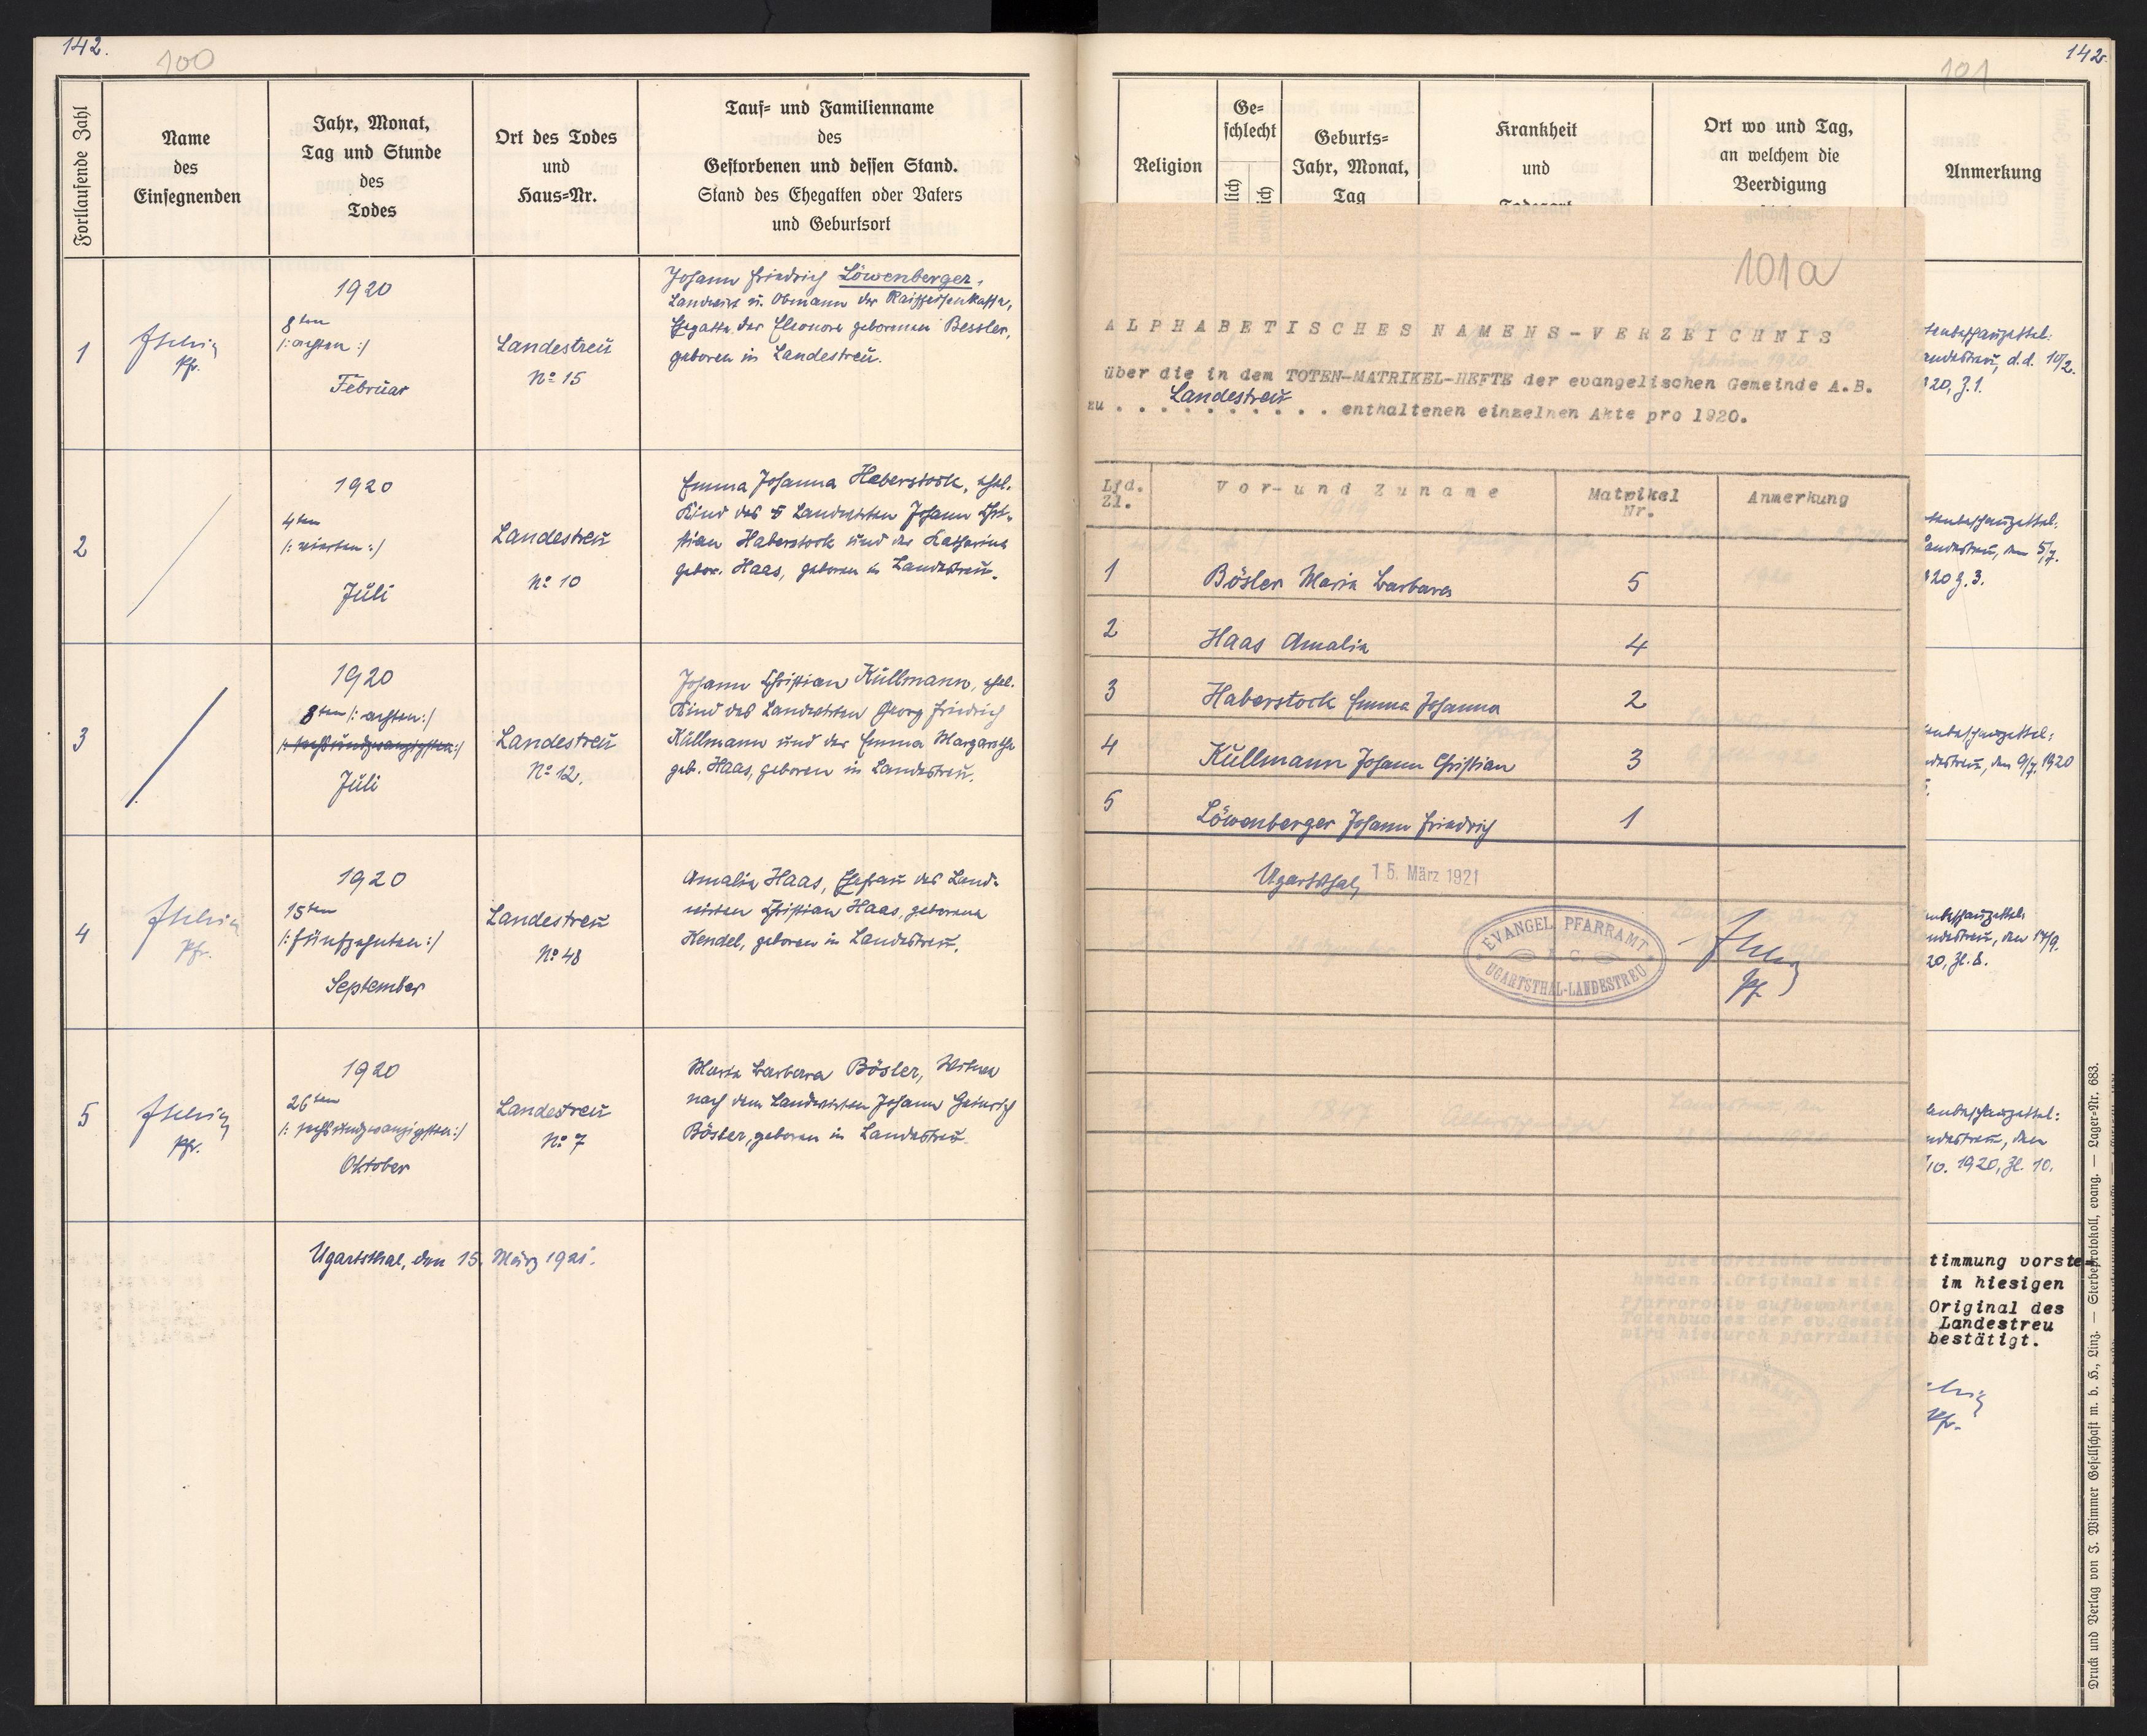 142.
100
Fortlaufende Zahl
Name
des
Einsegnenden
Jahr, Monat,
Tag und Stunde
des
Todes
Ort des Todes
und
Haus=Nr.
Tauf= und Familienname
des
Gestorbenen und dessen Stand.
Stand des Ehegatten oder Vaters
und Geburtsort
1
Pfr.
1920
8ten
/: achten :/
Februar
Landestreu
No 15
Johann Friedrich Löwenberger,
Landwirt u. Obmann der Raiffeisenkasse,
Ehegatte der Eleonore geborenen Bessler,
geboren in Landestreu.
2
1920
4ten
/: vierten :/
Juli
Landestreu
No 10
Emma Johanna Haberstock, ehel.
Kind des Landwirten Johann Chri-
stian Haberstock und der Katharina
gebor. Haas, geboren in Landestreu.
3
1920
8ten /: achten :/
/: sechsundzwanzigsten :/
Juli
Landestreu
No 12.
Johann Christian Kullmann, ehel.
Kind des Landwirten Georg Friedrich
Kullmann und der Emma Margarethe
geb. Haas, geboren in Landestreu.
4
Pfr.
1920
15ten
/: fünfzehnten :/
September
Landestreu
No 48
Amalia Haas, Ehefrau des Land-
wirten Christian Haas, geborene
Hendel, geboren in Landestreu.
5
Pfr.
1920
26ten
/: sechsundzwanzigsten :/
Oktober
Landestreu
No 7
Maria Barbara Bösler, Witwe
nach dem Landwirten Johann Heinrich
Bösler, geboren in Landestreu
Ugartsthal, den 15. März 1921.
142
101
Religion
Ge=
schlecht
männlich
Geburts=
Jahr, Monat,
Tag
Krankheit
und
Todesart
Ort wo und Tag,
an welchem die
Beerdigung
geschehen
Anmerkung
101a
ALPHABETISCHES NAMENS-VERZEICHNIS
über die in dem TOTEN-MATRIKEL-HEFTE der evangelischen Gemeinde A.B.
zu . . Landestreu . . enthaltenen einzelnen Akte pro 1920.
Lfd.
Zl.
Vor- und Zuname
Matrikel
Nr.
Anmerkung
1 Bösler Maria Barbara 5
2 Haas Amalia 4
3 Haberstock Emma Johanna 2
4 Kullmann Johann Christian 3
5 Löwenberger Johann Friedrich 1
Ugartsthal, 15. März 1921
EVANGEL. PFARRAMT
UGARTSTHAL-LANDESTREU
Pf.
tenbeschauzettel:
andestreu, d.d. 10/2.
20, Z.1.
tenbeschauzettel:
andestreu, den 5/7.
20 Z. 3.
enbeschauzettel:
ndestreu, den 9/7. 1920
enbeschauzettel:
ndestreu, den 17/9.
20, Zl. 8.
enbeschauzettel:
ndestreu, den
/10. 1920, Zl. 10.
timmung vorste=
im hiesigen
Original des
Landestreu
bestätigt.
Pfr.
Druck und Verlag von J. Wimmer Gesellschaft m. b. H., Linz. — Sterbeprotokoll, evang. — Lager=Nr. 683.